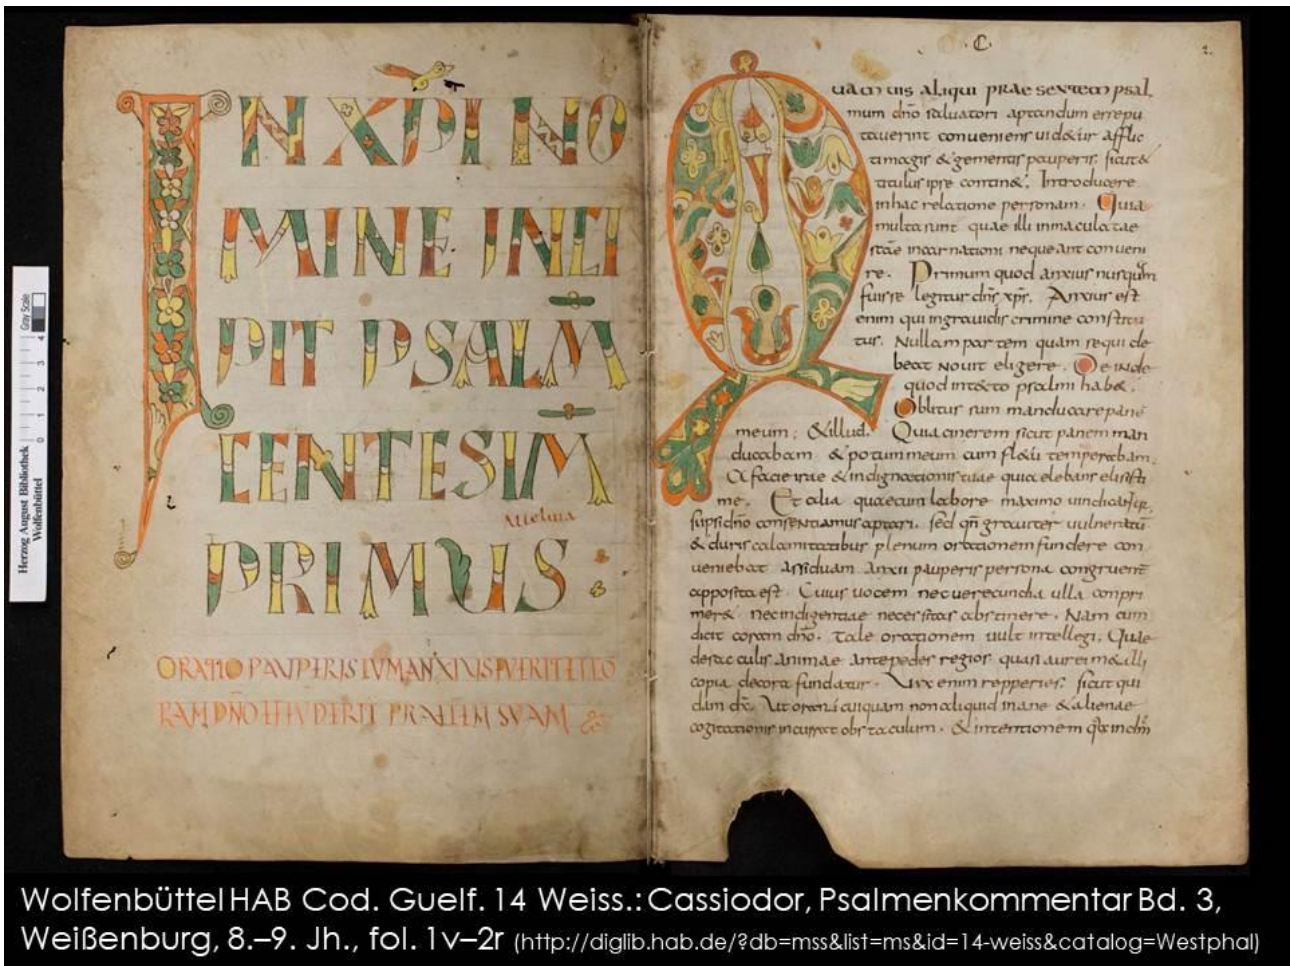 IN XPI NO
MINE INCI
PIT PSALM
CENTESIM
Alleluia
PRIMUS
ORATIO PAUPERIS CUM ANXIUS FUERIT ET CO
RAM DNO EFFUDERIT PRAECEM SUAM
C
2.
Quamuis aliqui prae sextem psal
mum dno saluatori aptandum erepu
tauerint conueniens uidetur afflic
ti magis & gementis pauperis. sicut &
titulus ipse contin&. Introducere
in hac relatione personam. Quia
multa sunt quae illi inmaculatae
incarnationi nequeant conueni
re. Primum quod anxius nusquam
fuisse legitur dns xps. Anxius est
enim qui in grauidis crimine constitu
tus. Nullam partem quam sequi de
beat nouit eligere. Deinde
quod in psalmi hab&.
Oblitus sum manducare pane
meum; & illud. Quia cinerem sicut panem man
ducabam & potum meum cum fl&u temperabam.
A facie irae & indignationis tuae quia elebans elisisti
me. Et alia quae cum labore maximo
dno consentiamus aptari. sed grauiter uulneratu
& duris calamitatibus plenum orationem fundere con
ueniebat assiduam. pauperis persona congruent
apposita est. Cuius uocem nec uerecundia ulla conpri
mer& nec indigentiae necessitas abstinere. Nam cum
dicit coram dno. Tale orationem uult intellegi. Quae
culis animae ante pedes regios quasi aurei m&alli
copia decora fundatur. Uix enim repperies. sicut qui
dam dx. Ut orani cuiquam non aliquid inane & alienae
cogitationis incurrat obstaculum. & intentionem
Herzog August Bibliothek
Wolfenbüttel
Gray Scale
0 1 2 3 4
Wolfenbüttel HAB Cod. Guelf. 14 Weiss.: Cassiodor, Psalmenkommentar Bd. 3,
Weißenburg, 8.–9. Jh., fol. 1v–2r (http://diglib.hab.de/?db=mss&list=ms&id=14-weiss&catalog=Westphal)